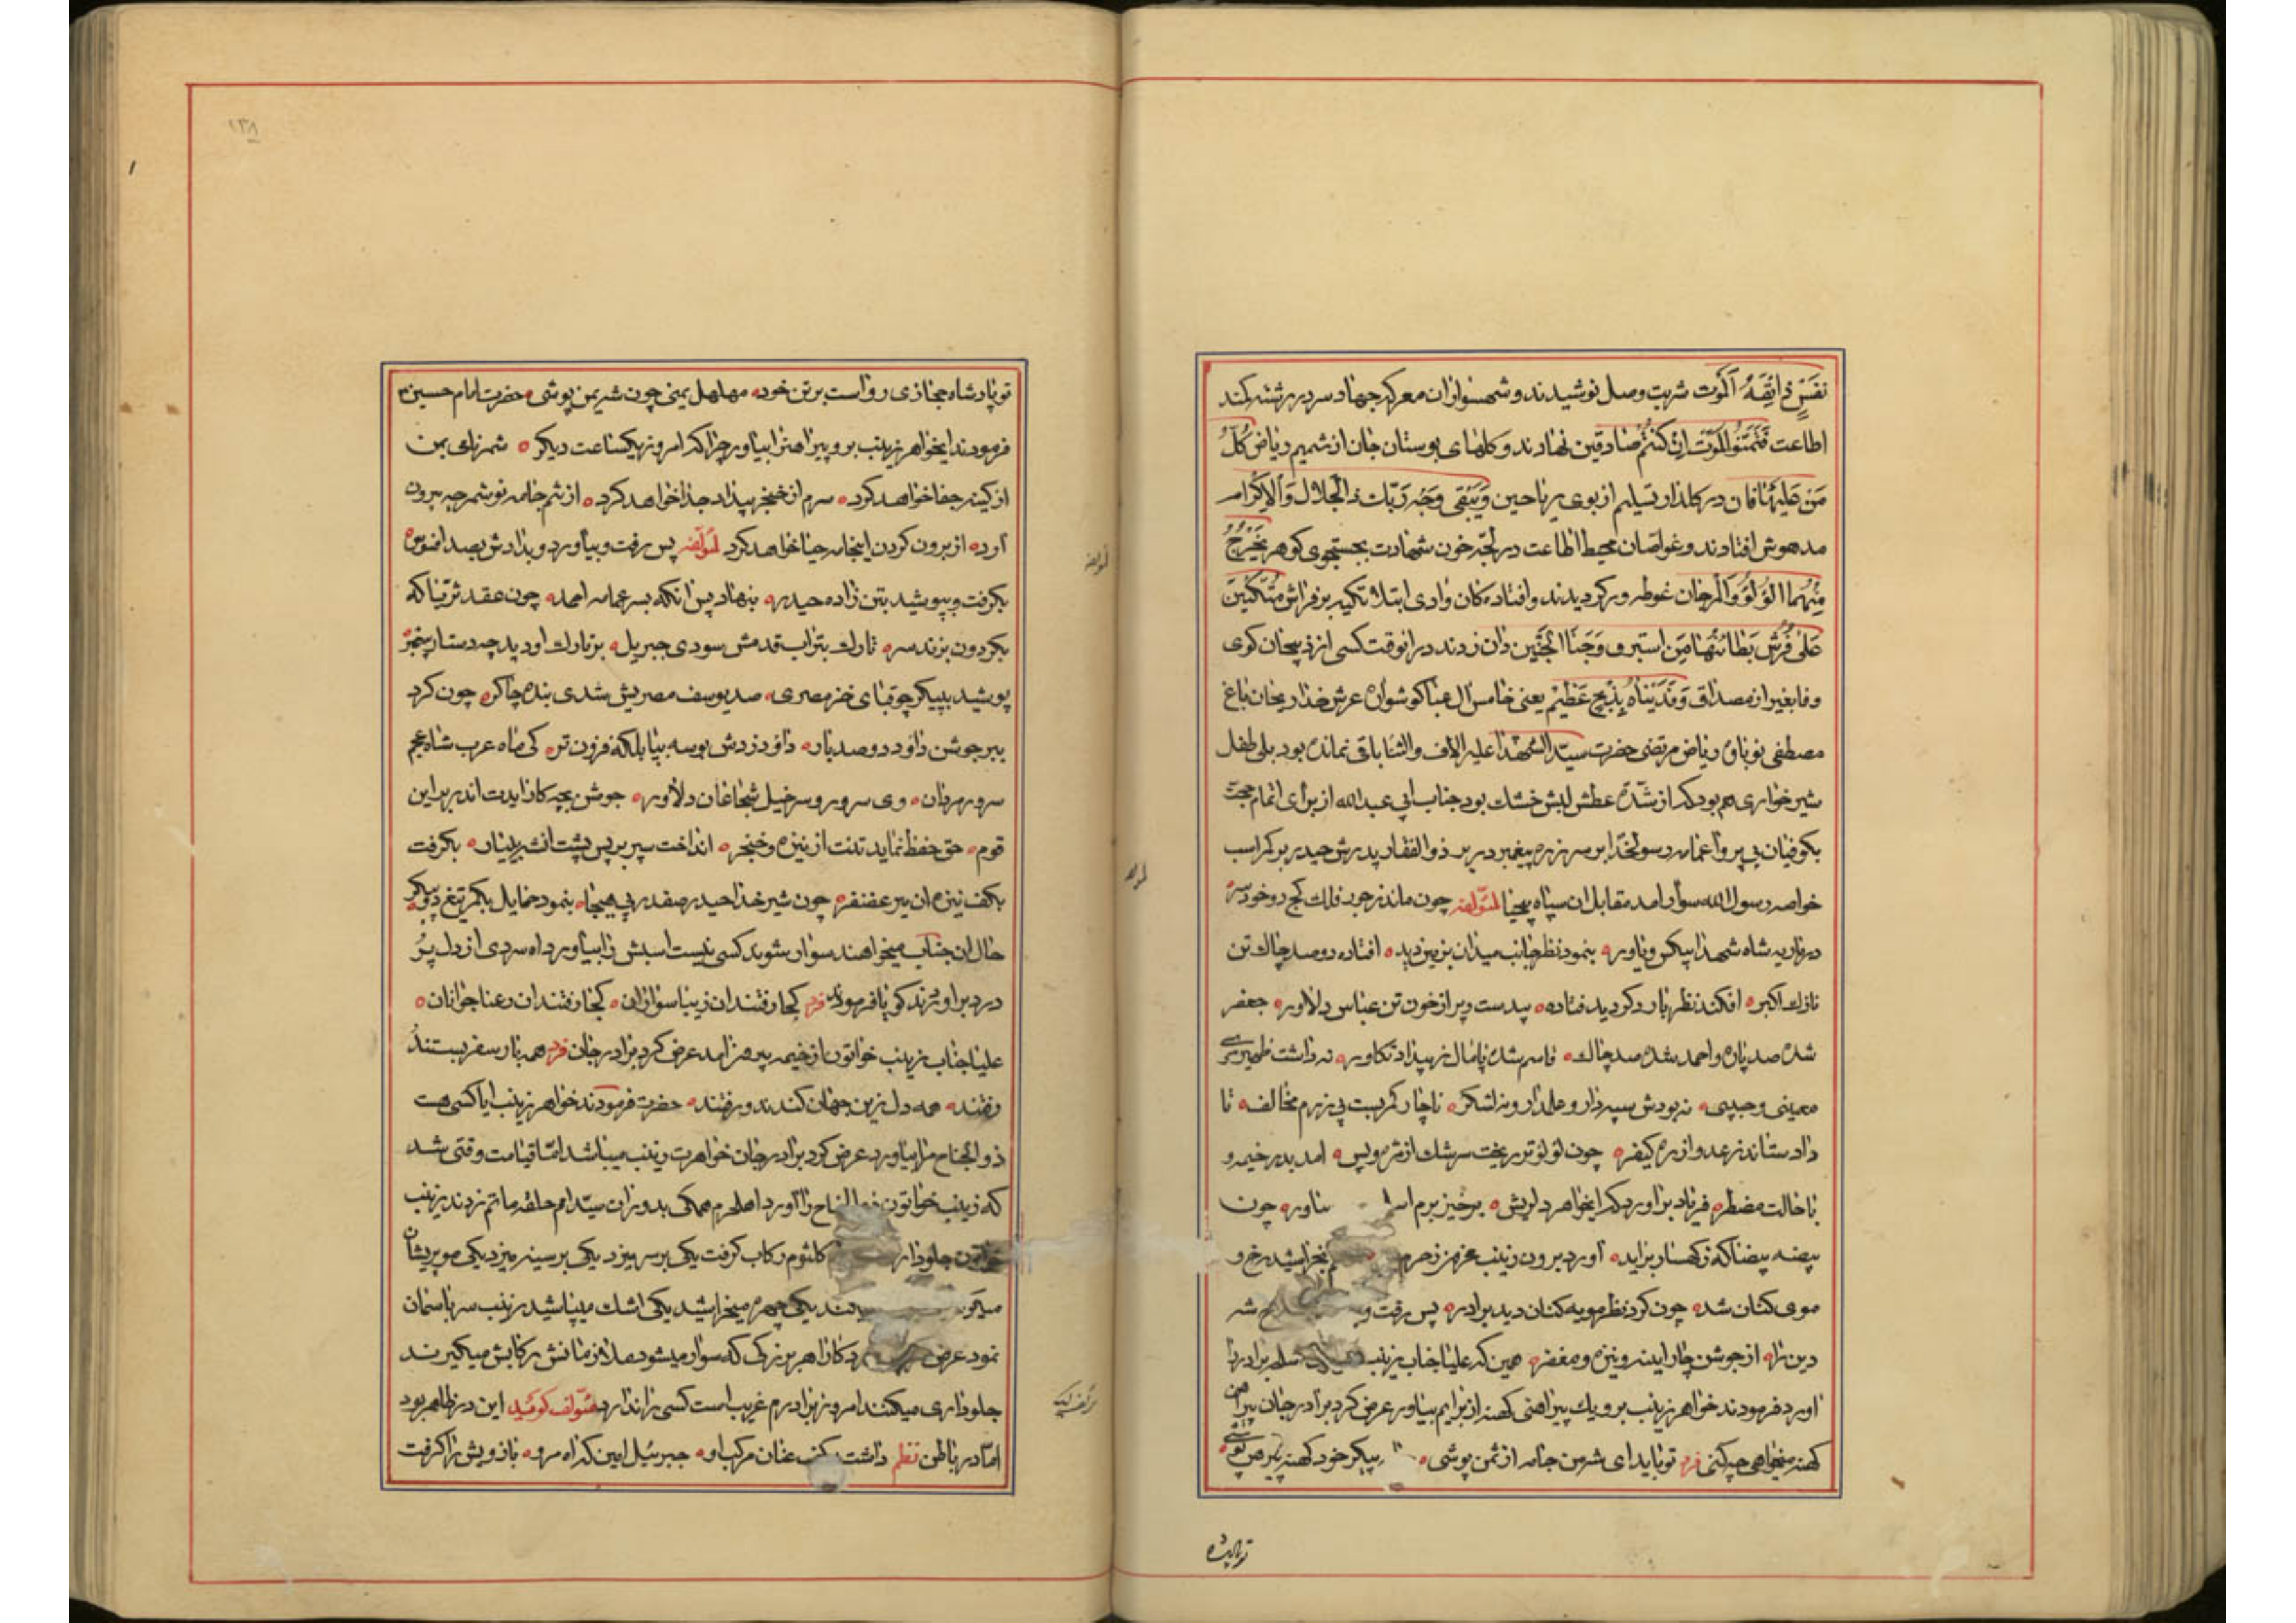 نَفْسٍ ذائِقَةُ ٱلمَوت شربت وصل نوشیدند و شهسواران معرکه جهاد سر در رشته کمند
اطاعت فَتَمَنَّوُا المَوْتَ اِنْ کُنْتُم صادِقین نهادند و کلهای بوستان جان از شمیم ریاض کُلُّ
مَنْ عَلَیْهٰا فان در کلذار تسلیم از بوی ریاحین وَیَبْقٰی وَجْهُ رَبِّكَ ذو الجَلالِ وَالْاِکْرام
مدهوش افتادند و غواصان محیط اطاعت در لجهٔ خون شهادت بجستجوی کوهر یَخْرُجُ
مِنْهُمَا اللؤلؤُ وَالمَرجان غوطه ور کردیدند و افتاده کان وادی ابتلا تکیه بر فراش مُتَّکِئینَ
عَلٰی فُرُشٍ بَطٰائِنُهٰا مِن اِستبرق وَجَنَا الجَنَّتَینِ دان زدند در انوقت کسی از ذبیحان کوی
وفا بغیر از مصداق وَفَدَیْناهُ بِذِبْحٍ عَظیمٍ یعنی خامس ال عبا کوشواره عرش خدا ریحان باغ
مصطفی نوباوه ریاض مرتضی حضرت سیّد الشهدا علیه الاف والثنا باقی نمانده بود بلی طفل
شیر خواری هم بود که از شدّة عطش لبش خشك بود جناب ابی عبدالله از برای اتمام حجت
بکوفیان بی پروا عمامه رسولخدا بر سر زره پیغمبر در بر ذوالفقار پدرش حیدر بر کمر اسب
خواصه رسول الله سوار امد مقابل ان سپاه بیحیا لمؤلفه چون ماند ز جور فلك کج رو خود سر
در ماریه شاه شهدا بیکس و یاور بنمود نظر جانب میدان بزمین دید افتاده دو صد چاك تن
نازك اکبر افکند نظر بار دکر دید فتاده بیدست و پر از خون تن عباس دلاور جعفر
شده صد پاره و احمد شده صد چاك قاسم شده پامال ز بیداد تکاور نه داشت ظهیری
معینی و حبیبی نه بودش سپه دار و علمدار و نه لشکر ناچار کمر بست پی رزم مخالف تا
داد ستاند ز عدو از ره کیفر چون لؤلؤ تر ریخت سرشك از مژه و پس امد بدر خیمه و
با حالت مضطر فریاد براورد که ایخواهر دلریش برخیز برم اسلـ ناور چون
بیضه بیضا که ز کهسار براید اورد برون زینب غمزه ز حرم بخراشید رخ و
موی کنان شد چون کرد نظر مویه کنان دید برادر پس رفت و شه
دین را از جوشن چار اینه و نیزه و مغفر همین که علیا جناب زینب برادر را
اورد فرمودند خواهر زینب برو یك پیراهنی کهنه از برایم بیاور عرض کرد برادر جان پیراهن
کهنه میخواهی چکنی فرد تو نباید ای شه من جامه از ثمن پوشی پیکر خود کهنه پیرهن پوشی
تو پادشاه
تو پادشاه حجازی رواست بر تن خود مهلهل یمنی چون شه یمن پوشی حضرت امام حسین
فرمودند ایخواهر زینب برو پیراهنرا بیاور چرا که امروز یکساعت دیگر شمر نامی بمن
از کینه جفا خواهد کرد سرم از خنجر بیداد جدا خواهد کرد از تنم جامه نو شمر چه بیرون
آرد از برون کردن اینجامه حیا خواهد کرد لمؤلفه پس رفت و بیاورد و بدادش بصد افسوس
بکرفت و بپوشید بتن زاده حیدر بنهاد پس انکه بسر عمامه احمد چون عقد ثریّا که
بکردون بزند سر تارك بتراب قدمش سودی جبریل بر تارك او دید چه دستار پیمبر
پوشید به پیکر چو قبای خز مصری صد یوسف مصریش شدی بنده چاکر چون کرد
ببر جوشن داود دو صد بار داود زدش بوسه بپا بلکه فزون تر کی ماه عرب شاه عجم
سرور مردان وی سرور و سرخیل شجاعان دلاور جوشن بچه کار ایدت اندر بر این
قوم حق حفظ نماید تنت از نیزه و خنجر انداخت سپر بر پس پشت انشه دیندار بکرفت
بکف نیزه ان میر غضنفر چون شیر خدا حیدر صفدر پی هیجا بنمود حمایل بکمر تیغ دو پیکر
حال ان جناب میخواهند سوار شوند کسی نیست اسبش را بیاورد اه سردی از دل پُر
درد براوردند کویا فرمودند فرد کجا رفتند ان زیبا سواران کجا رفتند ان رعنا جوانان
علیا جناب زینب خواتون از خیمه بیرون امد عرض کرد برادر جان فرد همه بار سفر ببستند
رفتند همه دل زین جهان کندند و رفتند حضرت فرمودند خواهر زینب ایا کسی هست
ذوالجناح مرا بیاورد عرض کرد برادر جان خواهرت زینب میباشد امّا قیامت وقتی شد
که زینب خواتون ذوالجناح را اورد اهلحرم همکی بدوران سیّد امم حلقه ماتم زدند زینب
خواتون جلودار کلثوم رکاب کرفت یکی بر سر میزد یکی بر سینه میزد یکی مو پریشان
میکرد کند یکی چهره میخراشید یکی اشك میپاشید زینب سر باسمان
نمود عرض کرد کارا هر بزرکی که سوار میشود ملازمانش رکابش میکیرند
جلوداری میکنند امروز برادرم غریب است کسی را ندارد مؤلف کوید این در ظاهر بود
امّا در باطن نظم داشت کف عنان مرکب او جبرئیل امین که اه مرو بازویش را کرفت
لمؤلفه
لمؤلفه
۱۳۸